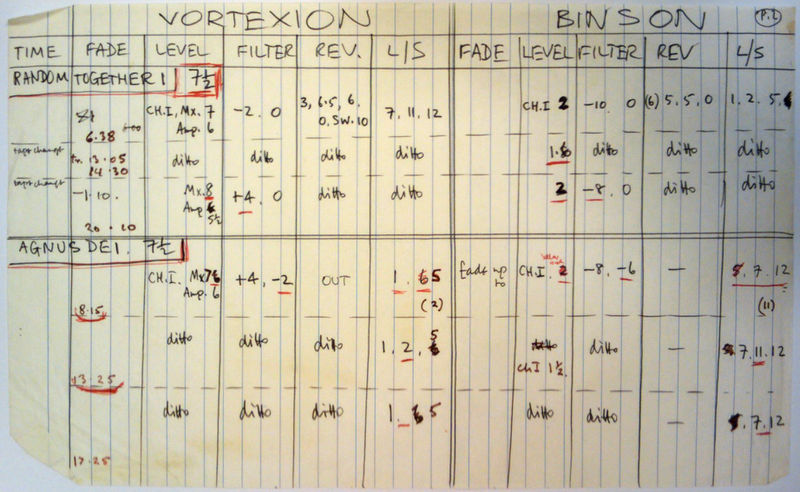 VORTEXION BINSON P.2
TIME FADE LEVEL FILTER REV. L/S FADE LEVEL FILTER REV L/S
RANDOM TOGETHER 1 7½
3, 6.5, 6.
CH.I, Mx. 7 -2. 0 7. 11. 12 CH.I 2 -10. 0 (6) 5. 5. 0 1. 2. 5.
Amp. 6 0. SW. 10
6.38
tape change
13.05 ditto ditto ditto ditto 1.8 ditto ditto ditto
14.30
Mx. 8 +4. 0 ditto ditto 2 -8. 0 ditto ditto
-1.10. Amp
5½
20.10
AGNUS DEI. 7½
CH.I. Mx +4. -2 OUT 1. 5 fade up CH.I. 2 -8. -6 — 7. 12
Amp. 6 to
(2) (11)
18.15
5
ditto ditto ditto 1. 2. ditto — 7. 11. 12
ch I 1½.
13.25
ditto ditto ditto 1. 5 ditto ditto — 7. 12
17.25